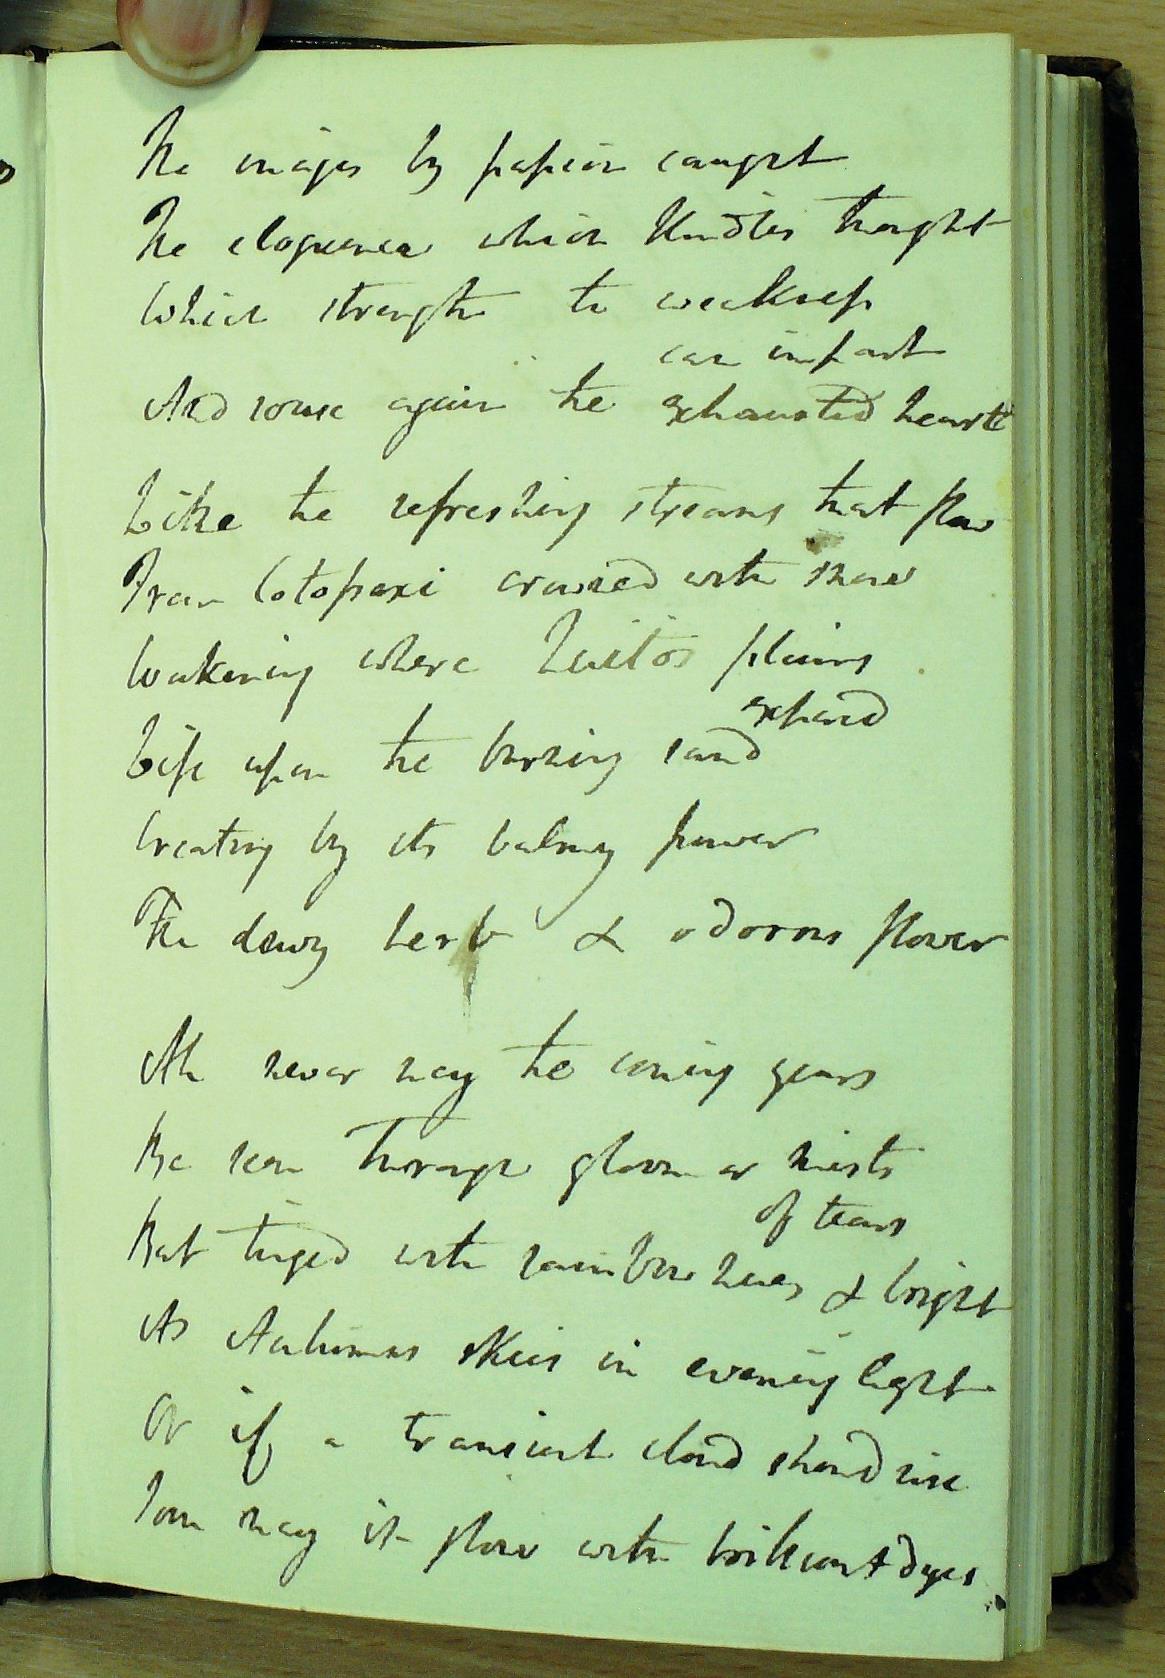 The images by passion caught
The eloquence which kindles thought
Which strength to weakness
can impart
And rouse again the exhausted heart
Like the refreshing streams that flow
From Cotopaxi crowned with snow
Wakening where Quitos plains
expand
Life upon the burning sand
Creating by its balmy power
The dewy herb & odorous flower
Ah never may the coming years
Be seen through gloom or mists
of tears
But tinged with rainbow hues & bright
As Autumns skies in evening light
Or if a transient cloud should rise
Soon may it glow with brilliant dyes